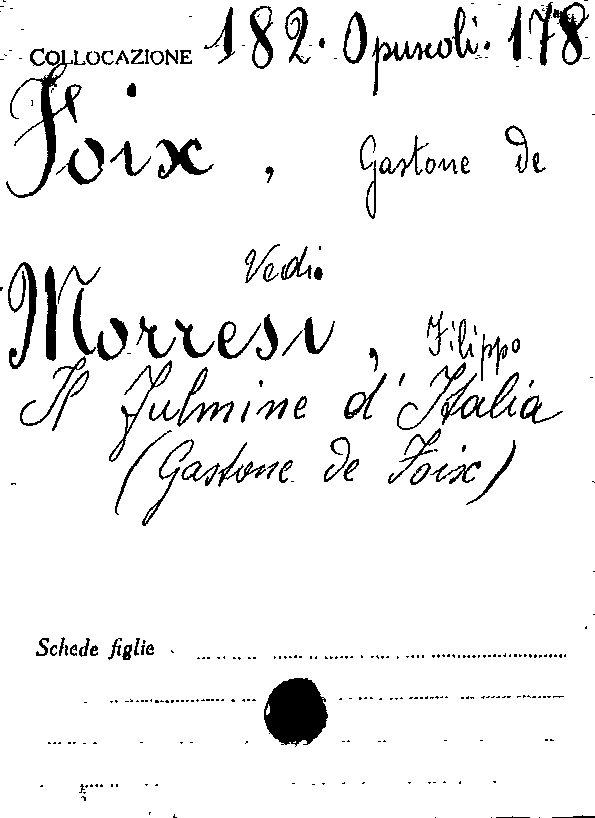 COLLOCAZIONE 182. Opuscoli. 178
Foix, Gastone de
Vedi.
Morresi, Filippo
Il Fulmine d'Italia
(Gastone de Foix)
Schede figlie